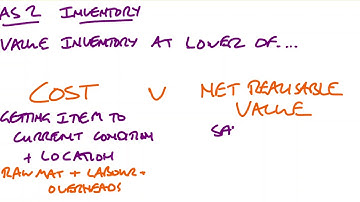 AS 2 INVENTORY
VALUE INVENTORY AT LOWER OF....
COST V NET REALISABLE
VALUE
GETTING ITEM TO
CURRENT CONDITION
+ LOCATION
RAW MAT + LABOUR +
OVERHEADS
SA